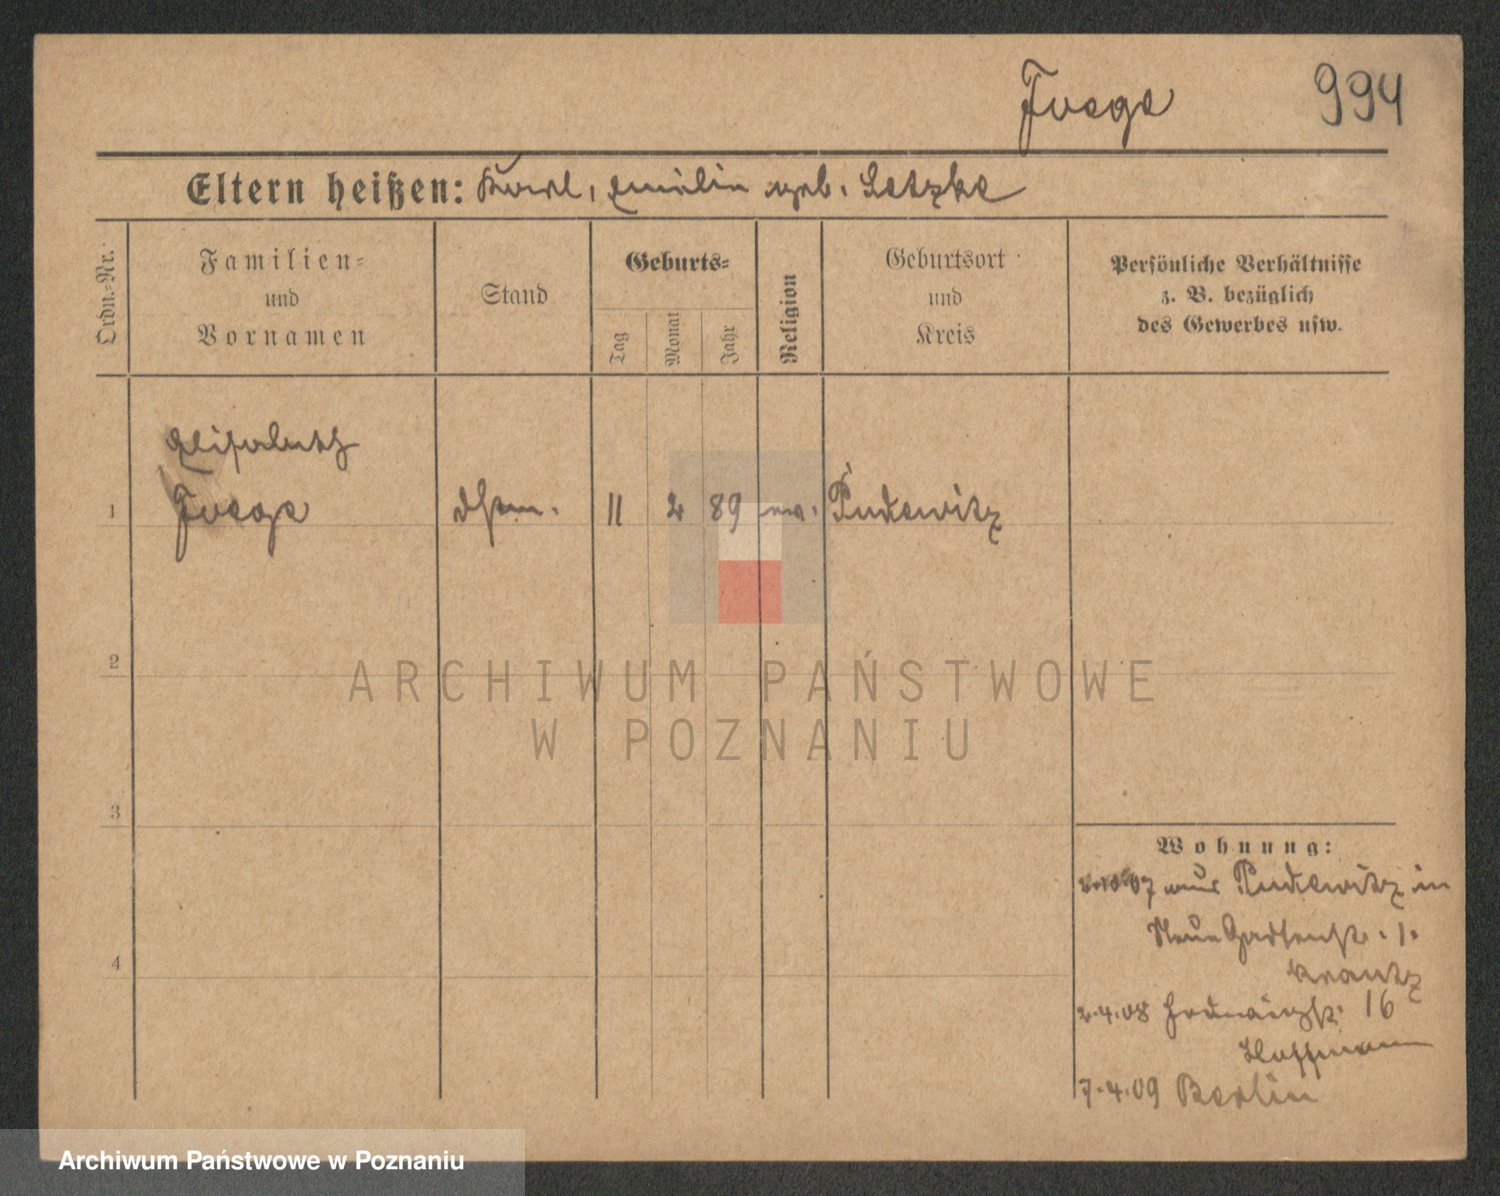 Fuege 994
Eltern heißen: Karl, Emilie geb. Letzke
Ordn.-Nr.
Familien-
und
Vornamen
Stand
Geburts-
Tag
Monat
Jahr
Religion
Geburtsort
und
Kreis
Persönliche Verhältnisse
z. B. bezüglich
des Gewerbes usw.
Elisabeth
1 Fuege 11 2 89 ev. Pudewitz
2
3
4
Wohnung:
07 aus Pudewitz in
Neue Gartenstr. 1.
Krantz
2.4.08 16
Hoffmann
7.4.09 Berlin
ARCHIWUM PAŃSTWOWE
W POZNANIU
Archiwum Państwowe w Poznaniu